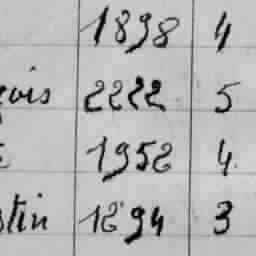 1898 4
gois 2222 5
1952 4.
stin 1894 3